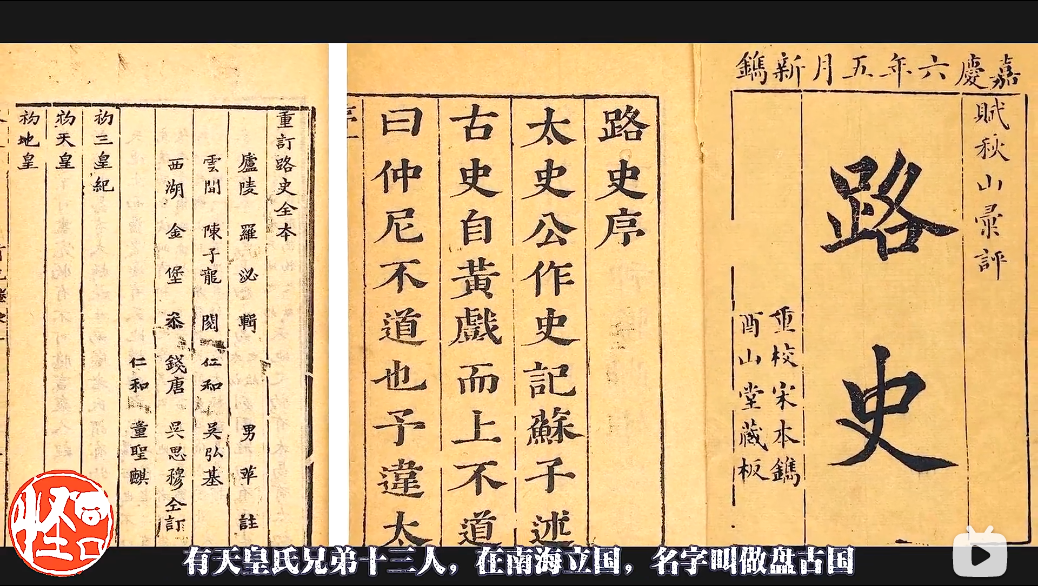 嘉慶六年五月新鐫
賦秋山彙評
路史
重校宋本鐫
酉山堂藏板
路史序
太史公作史記蘇子述
古史自黃戲而上不道
曰仲尼不道也予違太
重訂路史全本
廬陵 羅泌輯 男苹註
雲間 陳子龍閱 仁和 吳弘基
西湖 金堡叅 錢唐 吳思穆仝訂
仁和 童聖麒
初三皇紀
初天皇
初地皇
怪
有天皇氏兄弟十三人，在南海立国，名字叫做盘古国